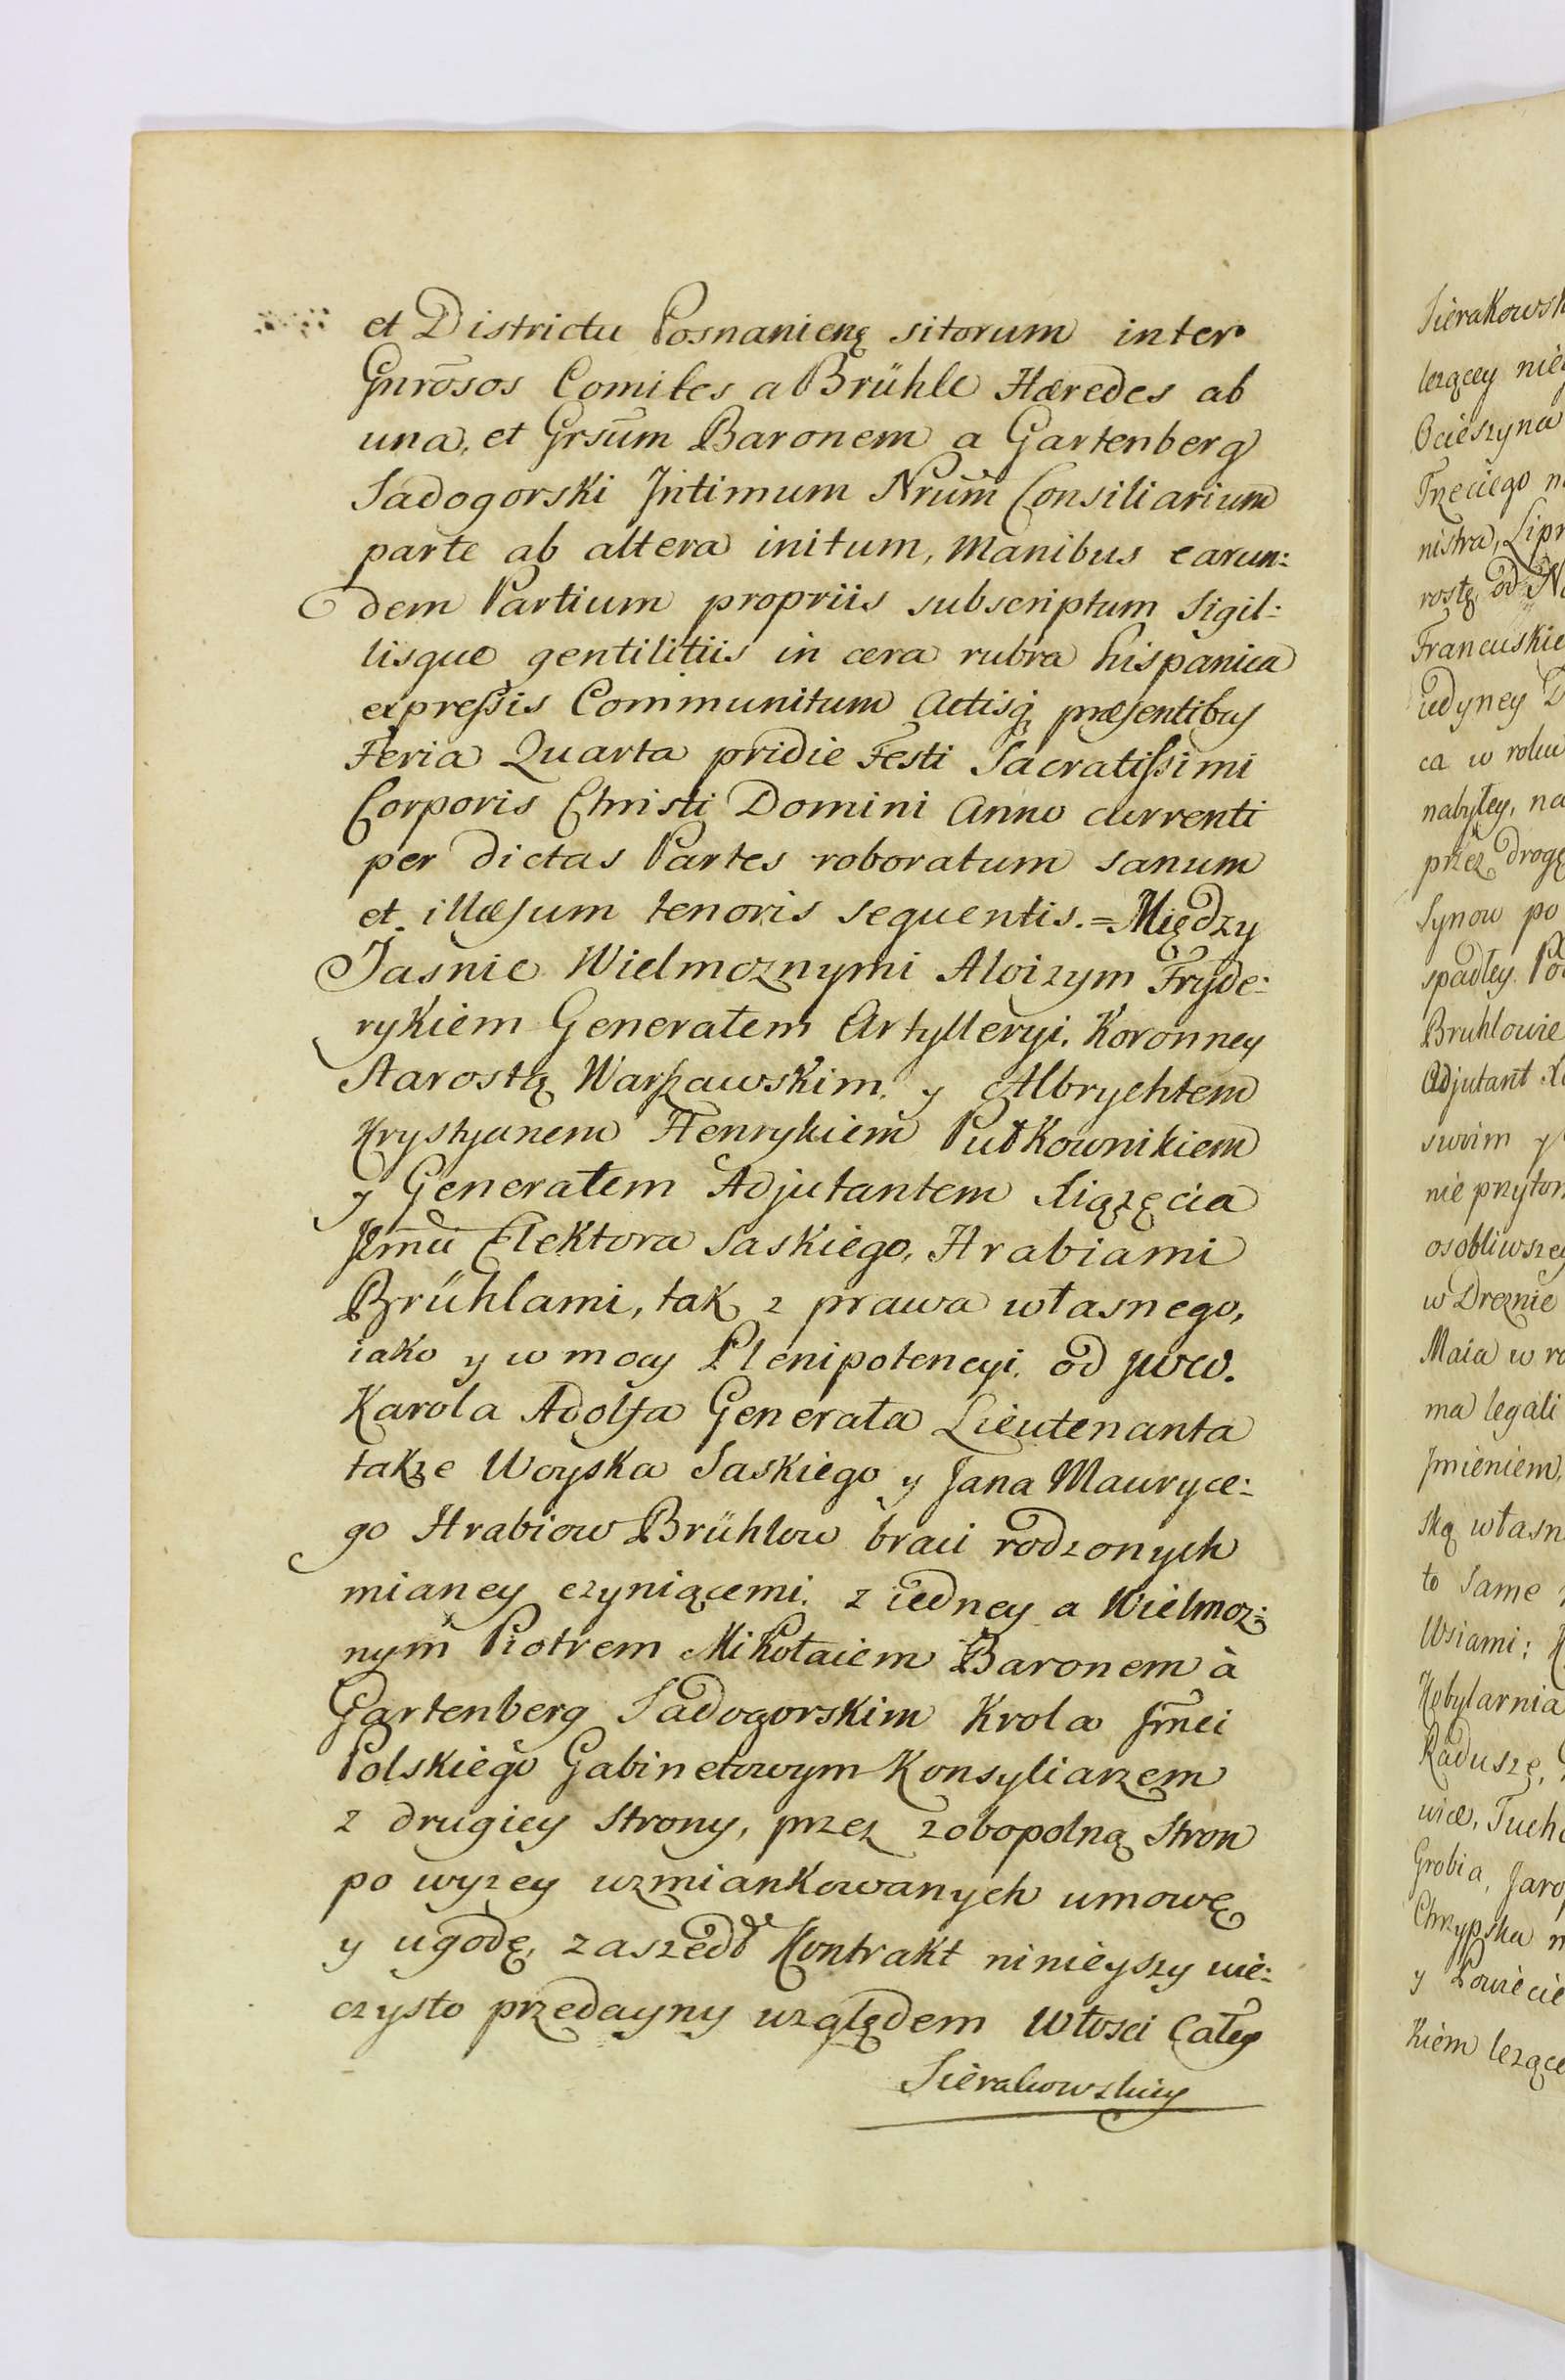 et Districtu Posnanienę sitorum inter
Gnrōsos Comites a Brühle Hæredes ab
una, et Grsūm Baronem a Gartenberg
Sadogorski Jntimum Nrūm Consiliarium
parte ab altera initum, Manibus earun:
dem Partium propriis subscriptum Sigil:
lisque gentilitiis in cera rubra hispanica
expreſsis Communitum Actisq̨ præsentibus
Feria Quarta pridie Festi Sacratiſsimi
Corporis Christi Domini Anno currenti
per dictas Partes roboratum sanum
et illæsum tenoris sequentis. = Między
Jasnie Wielmoznymi Aloizym Fryde:
rykiem Generałem Artylleryi Koronney
Starostą Warszawskim y Albrychtem
Krystyanem Henrykiem Pułkownikiem
y Generałem Adjutantem Xiązęcia
Jemū Elektora Saskiego, Hrabiami
Brühlami, tak z prawa własnego,
iako y w mocy Plenipotencyi od JWW.
Karola Adolfa Generała Lieutenanta
takze Woyska Saskiego y Jana Mauryce:
go Hrabiow Brühlow braci rodzonych
mianey czyniącemi z iedney a Wielmoz:
nym Piotrem Mikołaiem Baronem à
Gartenberg Sadogorskim Krola Jm̄ci
Polskiego Gabinetowym Konsyliarzem
z drugiey Strony, przez zobopolną Stron
po wyzey wzmiankowanych umowę
y ugodę, zaszedł Kontrakt ninieyszy wie:
czysto przedayny względem Włosci Całey
Sierakowskiey
Sierakowsk
lezącey nie
Ocieszyna
Trzeciego n
nistra, Lipn
rostę, od N
Francuskie
iedyney D
ca w roku
nabyłey, na
przez drogę
Synow po
spadłey Po
Bruhlowie
Adjutant X
swoim y
nie przyton
osobliwszey
w Dreznie
Maia w ro
ma legali
Jmieniem,
ską własn
to same
Wsiami: K
Kobylarnia
Radusze,
wice, Tuch
Grobia, Jaro
Chrzypska
y Łowiecie
Kiem lezące